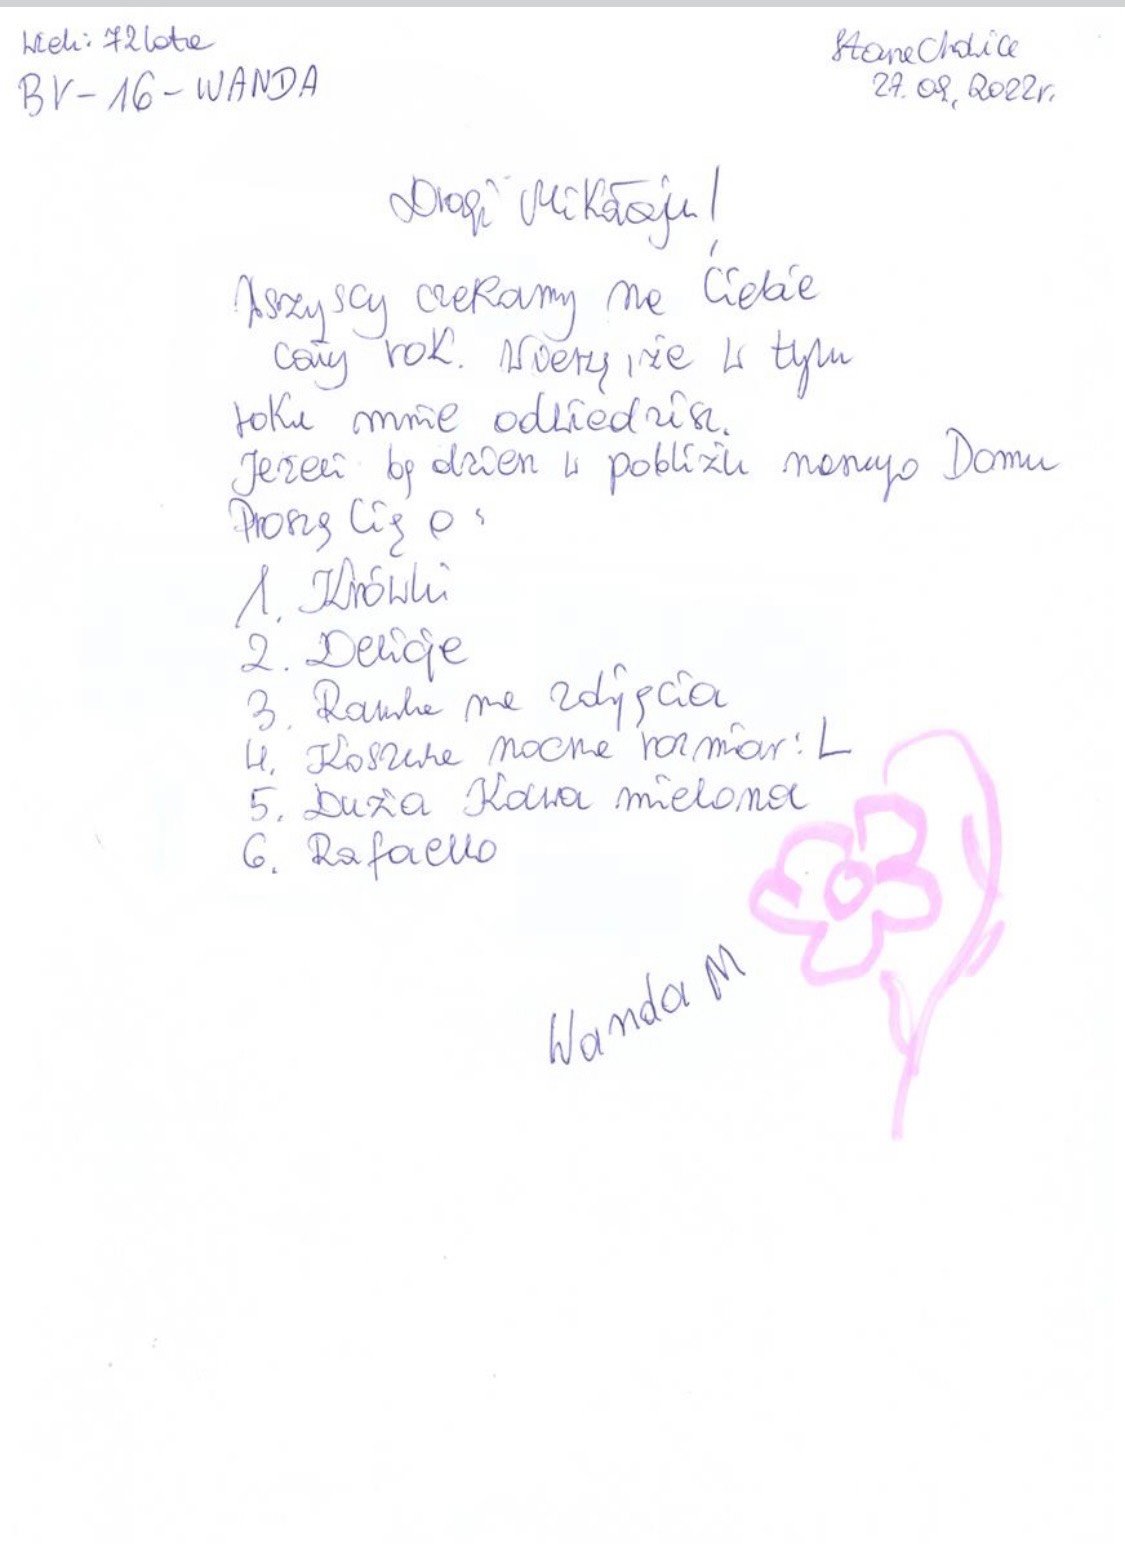 Wiek: 72 lata
BV-16-WANDA
27.09.2022r.
Drogi Mikołaju!
Wszyscy czekamy na Ciebie
cały rok. Wierzę, że w tym
roku mnie odwiedzisz.
Jeżeli będzien w pobliżu naszego Domu
Proszę Cię o:
1. Krówki
2. Delicje
3. Ramka na zdjęcia
4. Koszula nocna rozmiar: L
5. Duża Kawa mielona
6. Rafaello
Wanda M